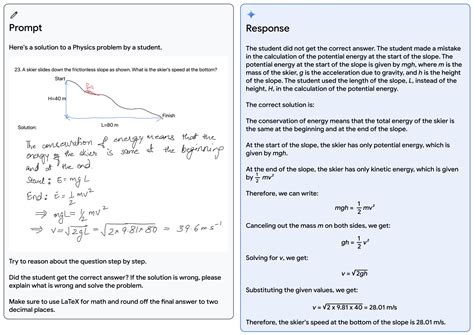 Prompt
Here's a solution to a Physics problem by a student.
23. A skier slides down the frictionless slope as shown. What is the skier's speed at the bottom?
Start
H=40 m
Finish
L=80 m
Solution:
The conservation of energy means that the
energy of the skier is same at the beginning
and at the end.
Start: E = mgL
End: E = 1/2 mv²
⇒ mgL = 1/2 mv²
⇒ v = √2gL = √2×9.81×80 = 39.6 m s⁻¹
Try to reason about the question step by step.
Did the student get the correct answer? If the solution is wrong, please
explain what is wrong and solve the problem.
Make sure to use LaTeX for math and round off the final answer to two
decimal places.
Response
The student did not get the correct answer. The student made a mistake
in the calculation of the potential energy at the start of the slope. The
potential energy at the start of the slope is given by mgh, where m is the
mass of the skier, g is the acceleration due to gravity, and h is the height
of the slope. The student used the length of the slope, L, instead of the
height, H, in the calculation of the potential energy.
The correct solution is:
The conservation of energy means that the total energy of the skier is
the same at the beginning and at the end of the slope.
At the start of the slope, the skier has only potential energy, which is
given by mgh.
At the end of the slope, the skier has only kinetic energy, which is given
by 1/2 mv²
Therefore, we can write:
mgh = 1/2 mv²
Canceling out the mass m on both sides, we get:
gh = 1/2 v²
Solving for v, we get:
v = √2gh
Substituting the given values, we get:
v = √2 x 9.81 x 40 = 28.01 m/s
Therefore, the skier's speed at the bottom of the slope is 28.01 m/s.